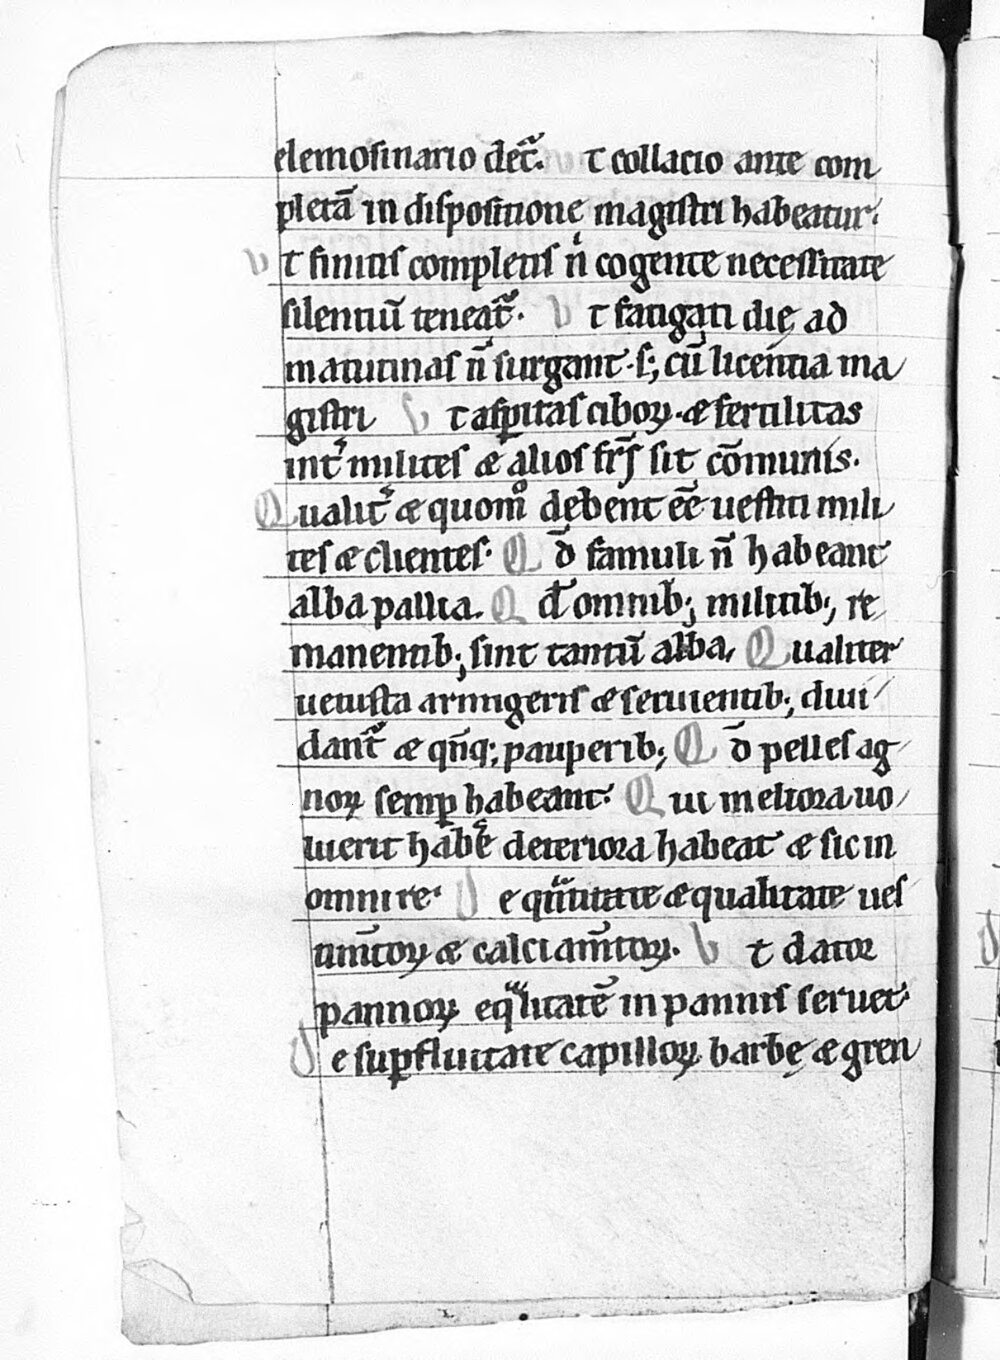 elemosinario det᷑. t collacio ante com
pletā in dispositione magistri habeatur.
Vt finitis completis ń cogente necessitate
silentiū teneat᷑. Vt fatigati dię ad
matutinas ñ surgant. s; cū licentia ma
gistri Vt asp̱itas ciboꝝ. & fertilitas
int᷑ milites & alios fr̄s sit cōmunis.
Qualit᷑ & quomͦ debent ēē uestiti mili
tes & clientes. Qđ famuli ñ habeant
alba pallia. Qđ omnib; militib; re
manentib; sint tantū alba. Qualiter
uetusta armigeris & seruientib; diui
dant᷑ & qn̄q; pauperib; Qđ pelles ag
noꝝ semꝑ habeant. Qui meliora uo
luerit hab᷑e deteriora habeat & sic in
omni re. De qͣntitate & qualitate ues
tim̄toꝝ & calciam̄toꝝ. Vt dator
pannoꝝ eqͣlitatē in pannis seruet.
De suꝑfluitate capilloꝝ barbę & gren